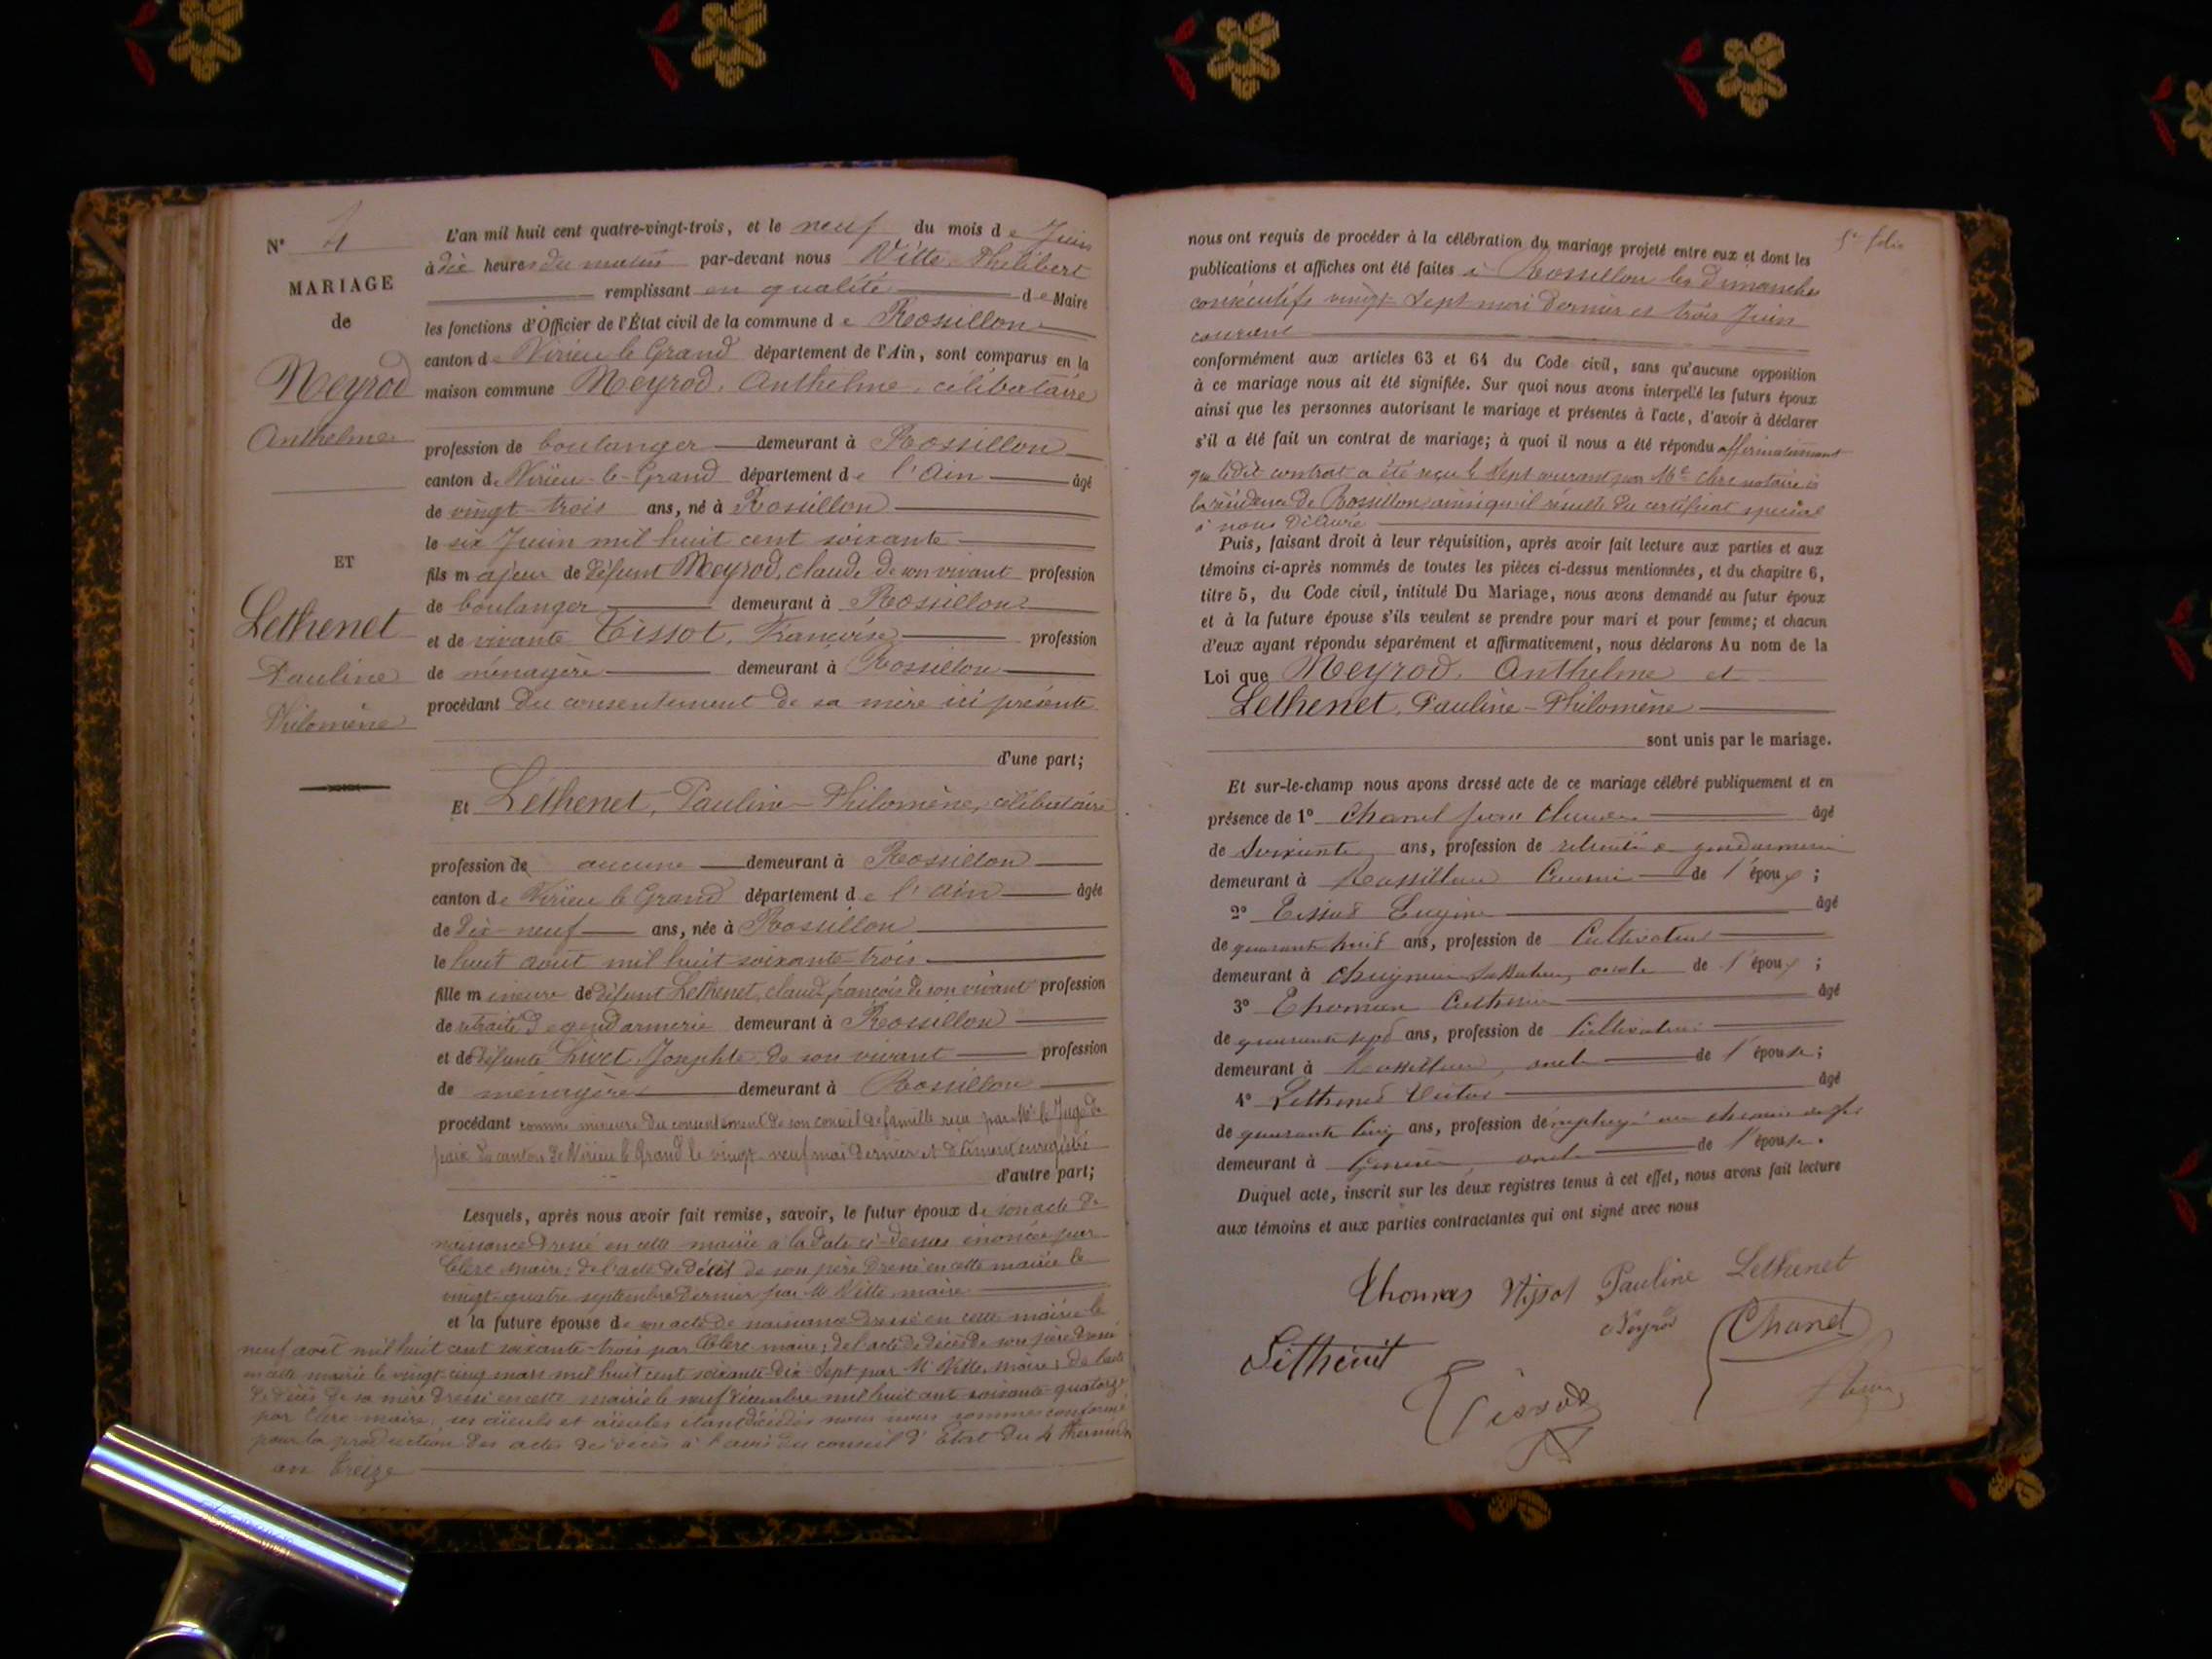 N° 4
MARIAGE
de
Neyrod
Anthelme
ET
Lethenet
Pauline
Philomène
L'an mil huit cent quatre-vingt-trois, et le neuf du mois de Juin
à dix heures du matin par-devant nous Vitte Philibert
remplissant en qualité de Maire
les fonctions d'Officier de l'État civil de la commune de Rossillon
canton de Virieu le Grand département de l'Ain, sont comparus en la
maison commune Neyrod, Anthelme, célibataire
profession de boulanger demeurant à Rossillon
canton de Virieu-le-Grand département de l'Ain âgé
de vingt-trois ans, né à Rossillon
le six Juin mil huit cent soixante
fils majeur de défunt Neyrod, claude de son vivant profession
de boulanger demeurant à Rossillon
et de vivante Tissot, Françoise profession
de ménagère demeurant à Rossillon
procédant du consentement de sa mère ici présente
d'une part;
Et Léthenet, Pauline-Philomène, célibataire
profession de aucune demeurant à Rossillon
canton de Virieu le Grand département de l'Ain âgée
de dix-neuf ans, née à Rossillon
le huit août mil huit soixante-trois
fille mineure de défunt Lethenet, claude françois de son vivant profession
de retraité de gendarmerie demeurant à Rossillon
et de défunte Livet, Josephte de son vivant profession
de ménagère demeurant à Rossillon
procédant comme mineure du consentement de son conseil de famille reçu par Mr le Juge de
paix du canton de Virieu le Grand le vingt-neuf mai dernier et dûment enregistré
d'autre part;
Lesquels, après nous avoir fait remise, savoir, le futur époux de son acte de
naissance dressé en cette mairie à la date ci-dessus énoncée par
Clerc maire; de l'acte de décès de son père dressé en cette mairie le
vingt-quatre septembre dernier par M Vitte, maire
et la future épouse de son acte de naissance dressé en cette mairie le
neuf août mil huit cent soixante-trois par Clerc maire; de l'acte de décès de son père dressé
en cette mairie le vingt-cinq mars mil huit cent soixante-dix-sept par M Vitte, maire; de l'acte
de décès de sa mère dressé en cette mairie le neuf décembre mil huit cent soixante-quatorze
par Clerc maire; ses aïeuls et aïeules étant décédés nous nous sommes conformé
pour la production des actes de décès à l'avis du conseil d'État du 4 thermidor
an treize
5e folio
nous ont requis de procéder à la célébration du mariage projeté entre eux et dont les
publications et affiches ont été faites à Rossillon les dimanches
consécutifs vingt-sept mai dernier et trois Juin
courant
conformément aux articles 63 et 64 du Code civil, sans qu'aucune opposition
à ce mariage nous ait été signifiée. Sur quoi nous avons interpellé les futurs époux
ainsi que les personnes autorisant le mariage et présentes à l'acte, d'avoir à déclarer
s'il a été fait un contrat de mariage; à quoi il nous a été répondu affirmativement
que ledit contrat a été reçu le sept courant par Me Clerc notaire à
la résidence de Rossillon ainsi qu'il résulte du certificat spécial
à nous délivré
Puis, faisant droit à leur réquisition, après avoir fait lecture aux parties et aux
témoins ci-après nommés de toutes les pièces ci-dessus mentionnées, et du chapitre 6,
titre 5, du Code civil, intitulé Du Mariage, nous avons demandé au futur époux
et à la future épouse s'ils veulent se prendre pour mari et pour femme; et chacun
d'eux ayant répondu séparément et affirmativement, nous déclarons Au nom de la
Loi que Neyrod, Anthelme et
Lethenet, Pauline-Philomène
sont unis par le mariage.
Et sur-le-champ nous avons dressé acte de ce mariage célébré publiquement et en
présence de 1° Chanel âgé
de soixante ans, profession de retraité de gendarmerie
demeurant à Rossillon de l'époux;
2° Tissot Eugène âgé
de quarante huit ans, profession de Cultivateur
demeurant à oncle de l'époux;
3° Thomas âgé
de quarante sept ans, profession de Cultivateur
demeurant à Rossillon, oncle de l'épouse;
4° Lethenet Victor âgé
de quarante cinq ans, profession d'employé au chemin de fer
demeurant à oncle de l'épouse.
Duquel acte, inscrit sur les deux registres tenus à cet effet, nous avons fait lecture
aux témoins et aux parties contractantes qui ont signé avec nous
Thomas Tissot Pauline Lethenet
Neyrod Chanel
Lethenet
Tissot